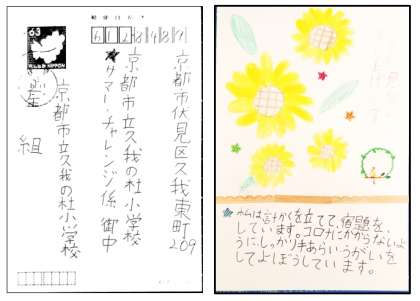 63
NIPPON
京都市伏見区久我東町
209
京都市立久我の杜小学校
サマーチャレンジ係 御中
京都市立久我の杜小学校
星組
私は計かくを立てて、宿題を、
しています。コロナにかからないよ
うに、しっかり手あらい、うがいを
してよぼうしています。